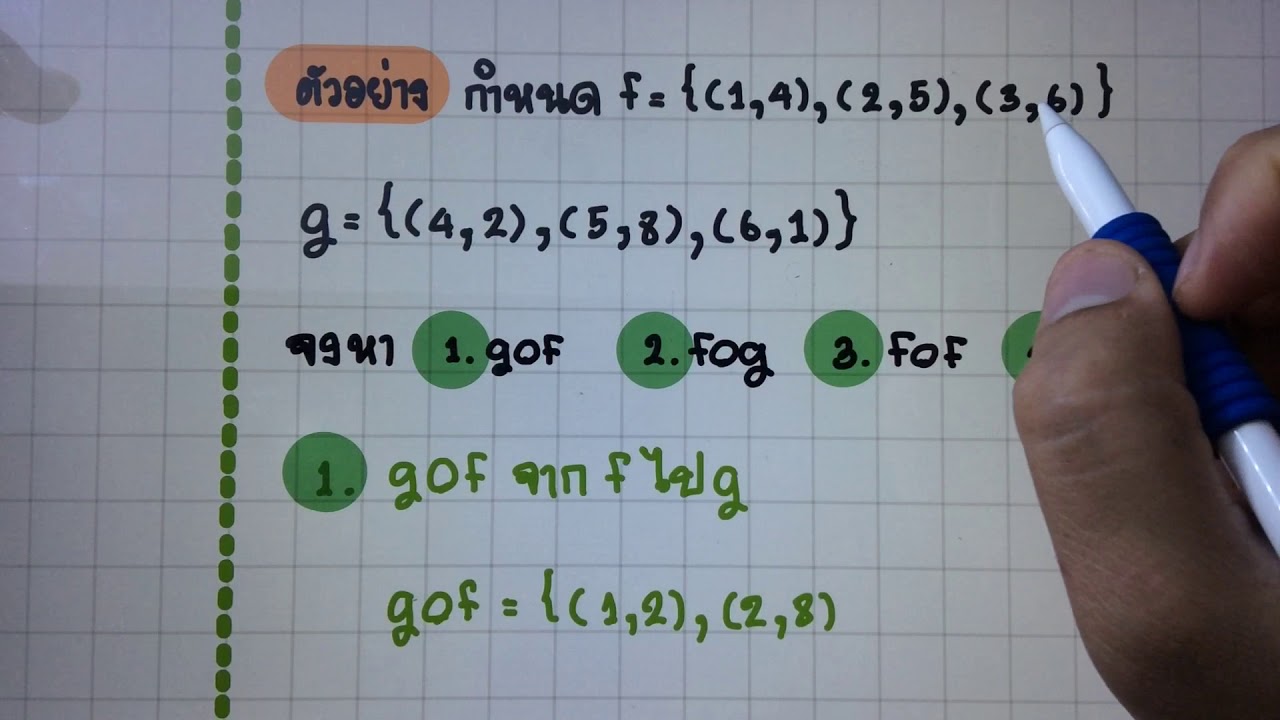 ตัวอย่าง กำหนด f = {(1,4),(2,5),(3,6)}
g = {(4,2),(5,8),(6,1)}
จงหา 1. gof 2. fog 3. fof
1. gof จาก f ไป g
gof = {(1,2),(2,8)